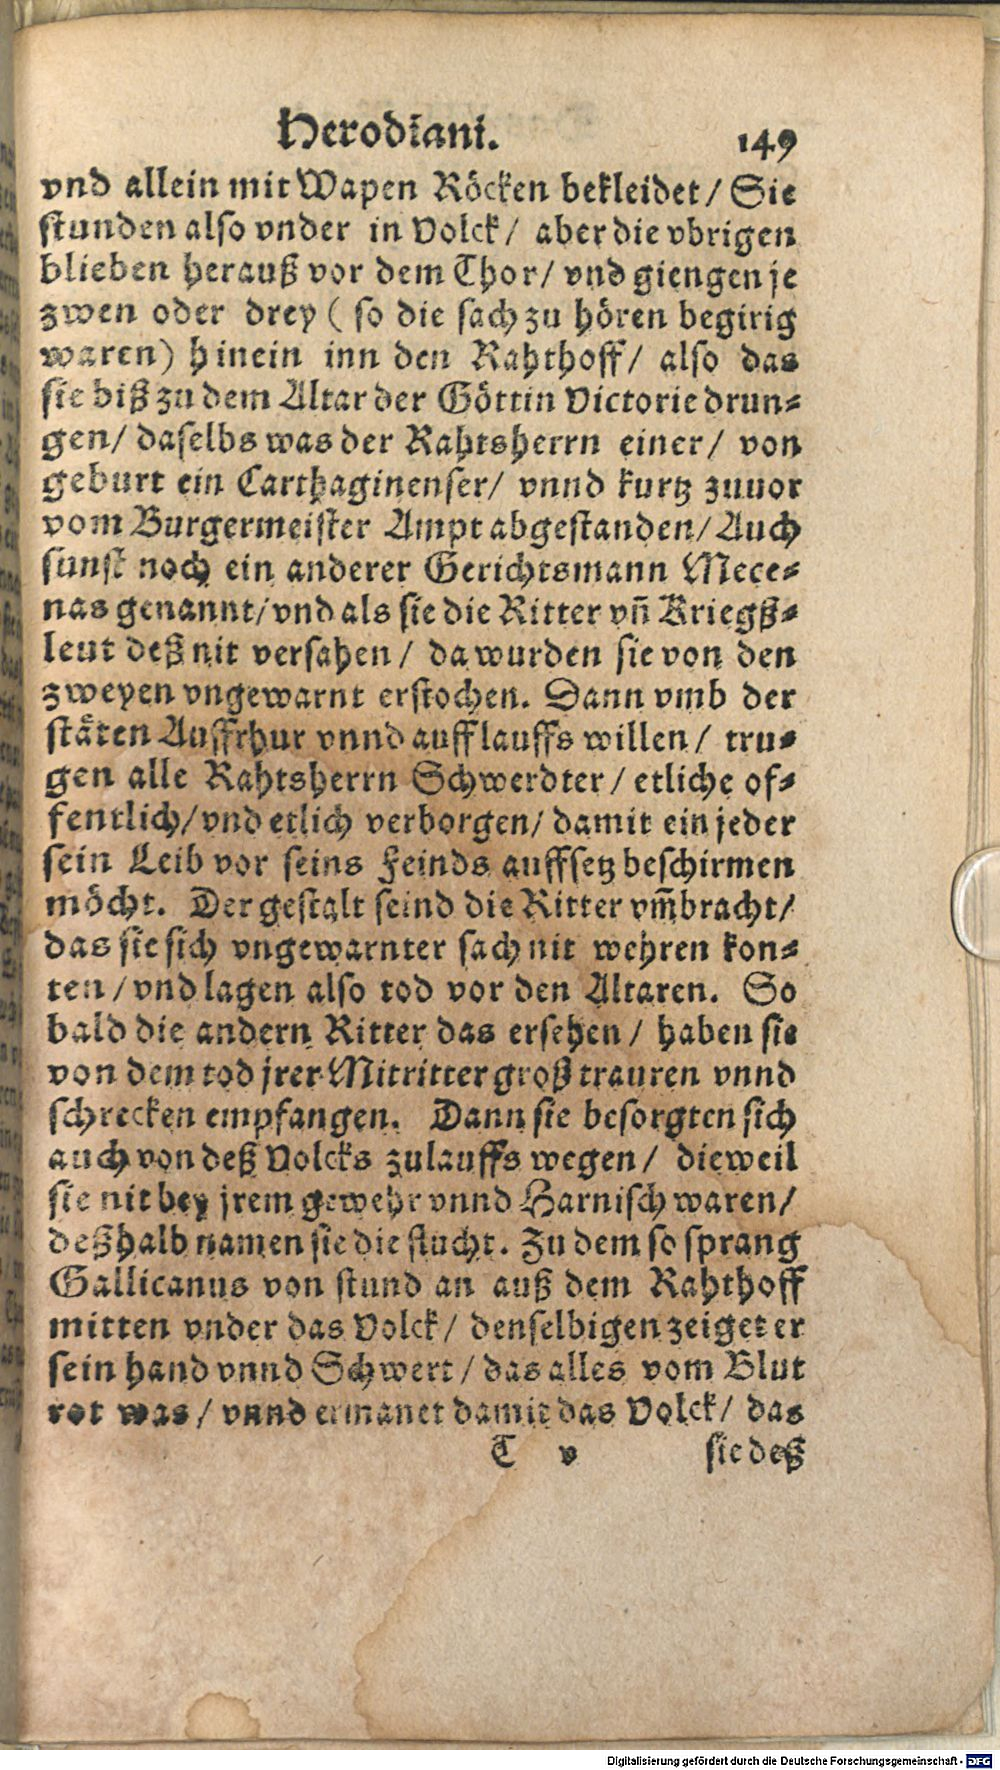 Herodiani. 149
vnd allein mit Wapen Röcken bekleidet/ Sie
stunden also vnder in Volck/ aber die vbrigen
blieben herauß vor dem Thor/ vnd giengen je
zwen oder drey ( so die sach zu hören begirig
waren) hinein inn den Rahthoff/ also das
sie biß zu dem Altar der Göttin Victorie drun-
gen/ daselbs was der Rahtsherrn einer/ von
geburt ein Carthaginenser/ vnnd kurtz zuuor
vom Burgermeister Ampt abgestanden/ Auch
sunst noch ein anderer Gerichtsmann Mece-
nas genannt/ vnd als sie die Ritter vñ Kriegß-
leut deß nit versahen/ da wurden sie von den
zweyen vngewarnt erstochen. Dann vmb der
stäten Auffrhur vnnd aufflauffs willen/ tru-
gen alle Rahtsherrn Schwerdter/ etliche of-
fentlich/ vnd etlich verborgen/ damit ein jeder
sein Leib vor seins Feinds auffsetz beschirmen
möcht. Der gestalt seind die Ritter vm̃bracht/
das sie sich vngewarnter sach nit wehren kon-
ten/ vnd lagen also tod vor den Altaren. So
bald die andern Ritter das ersehen/ haben sie
von dem tod jrer Mitritter groß trauren vnnd
schrecken empfangen. Dann sie besorgten sich
auch von deß Volcks zulauffs wegen/ dieweil
sie nit bey jrem gewehr vnnd Harnisch waren/
deßhalb namen sie die flucht. Zu dem so sprang
Gallicanus von stund an auß dem Rahthoff
mitten vnder das Volck/ denselbigen zeiget er
sein hand vnnd Schwert/ das alles vom Blut
rot was/ vnnd ermanet damit das Volck/ das
T v sie deß
Digitalisierung gefördert durch die Deutsche Forschungsgemeinschaft - DFG